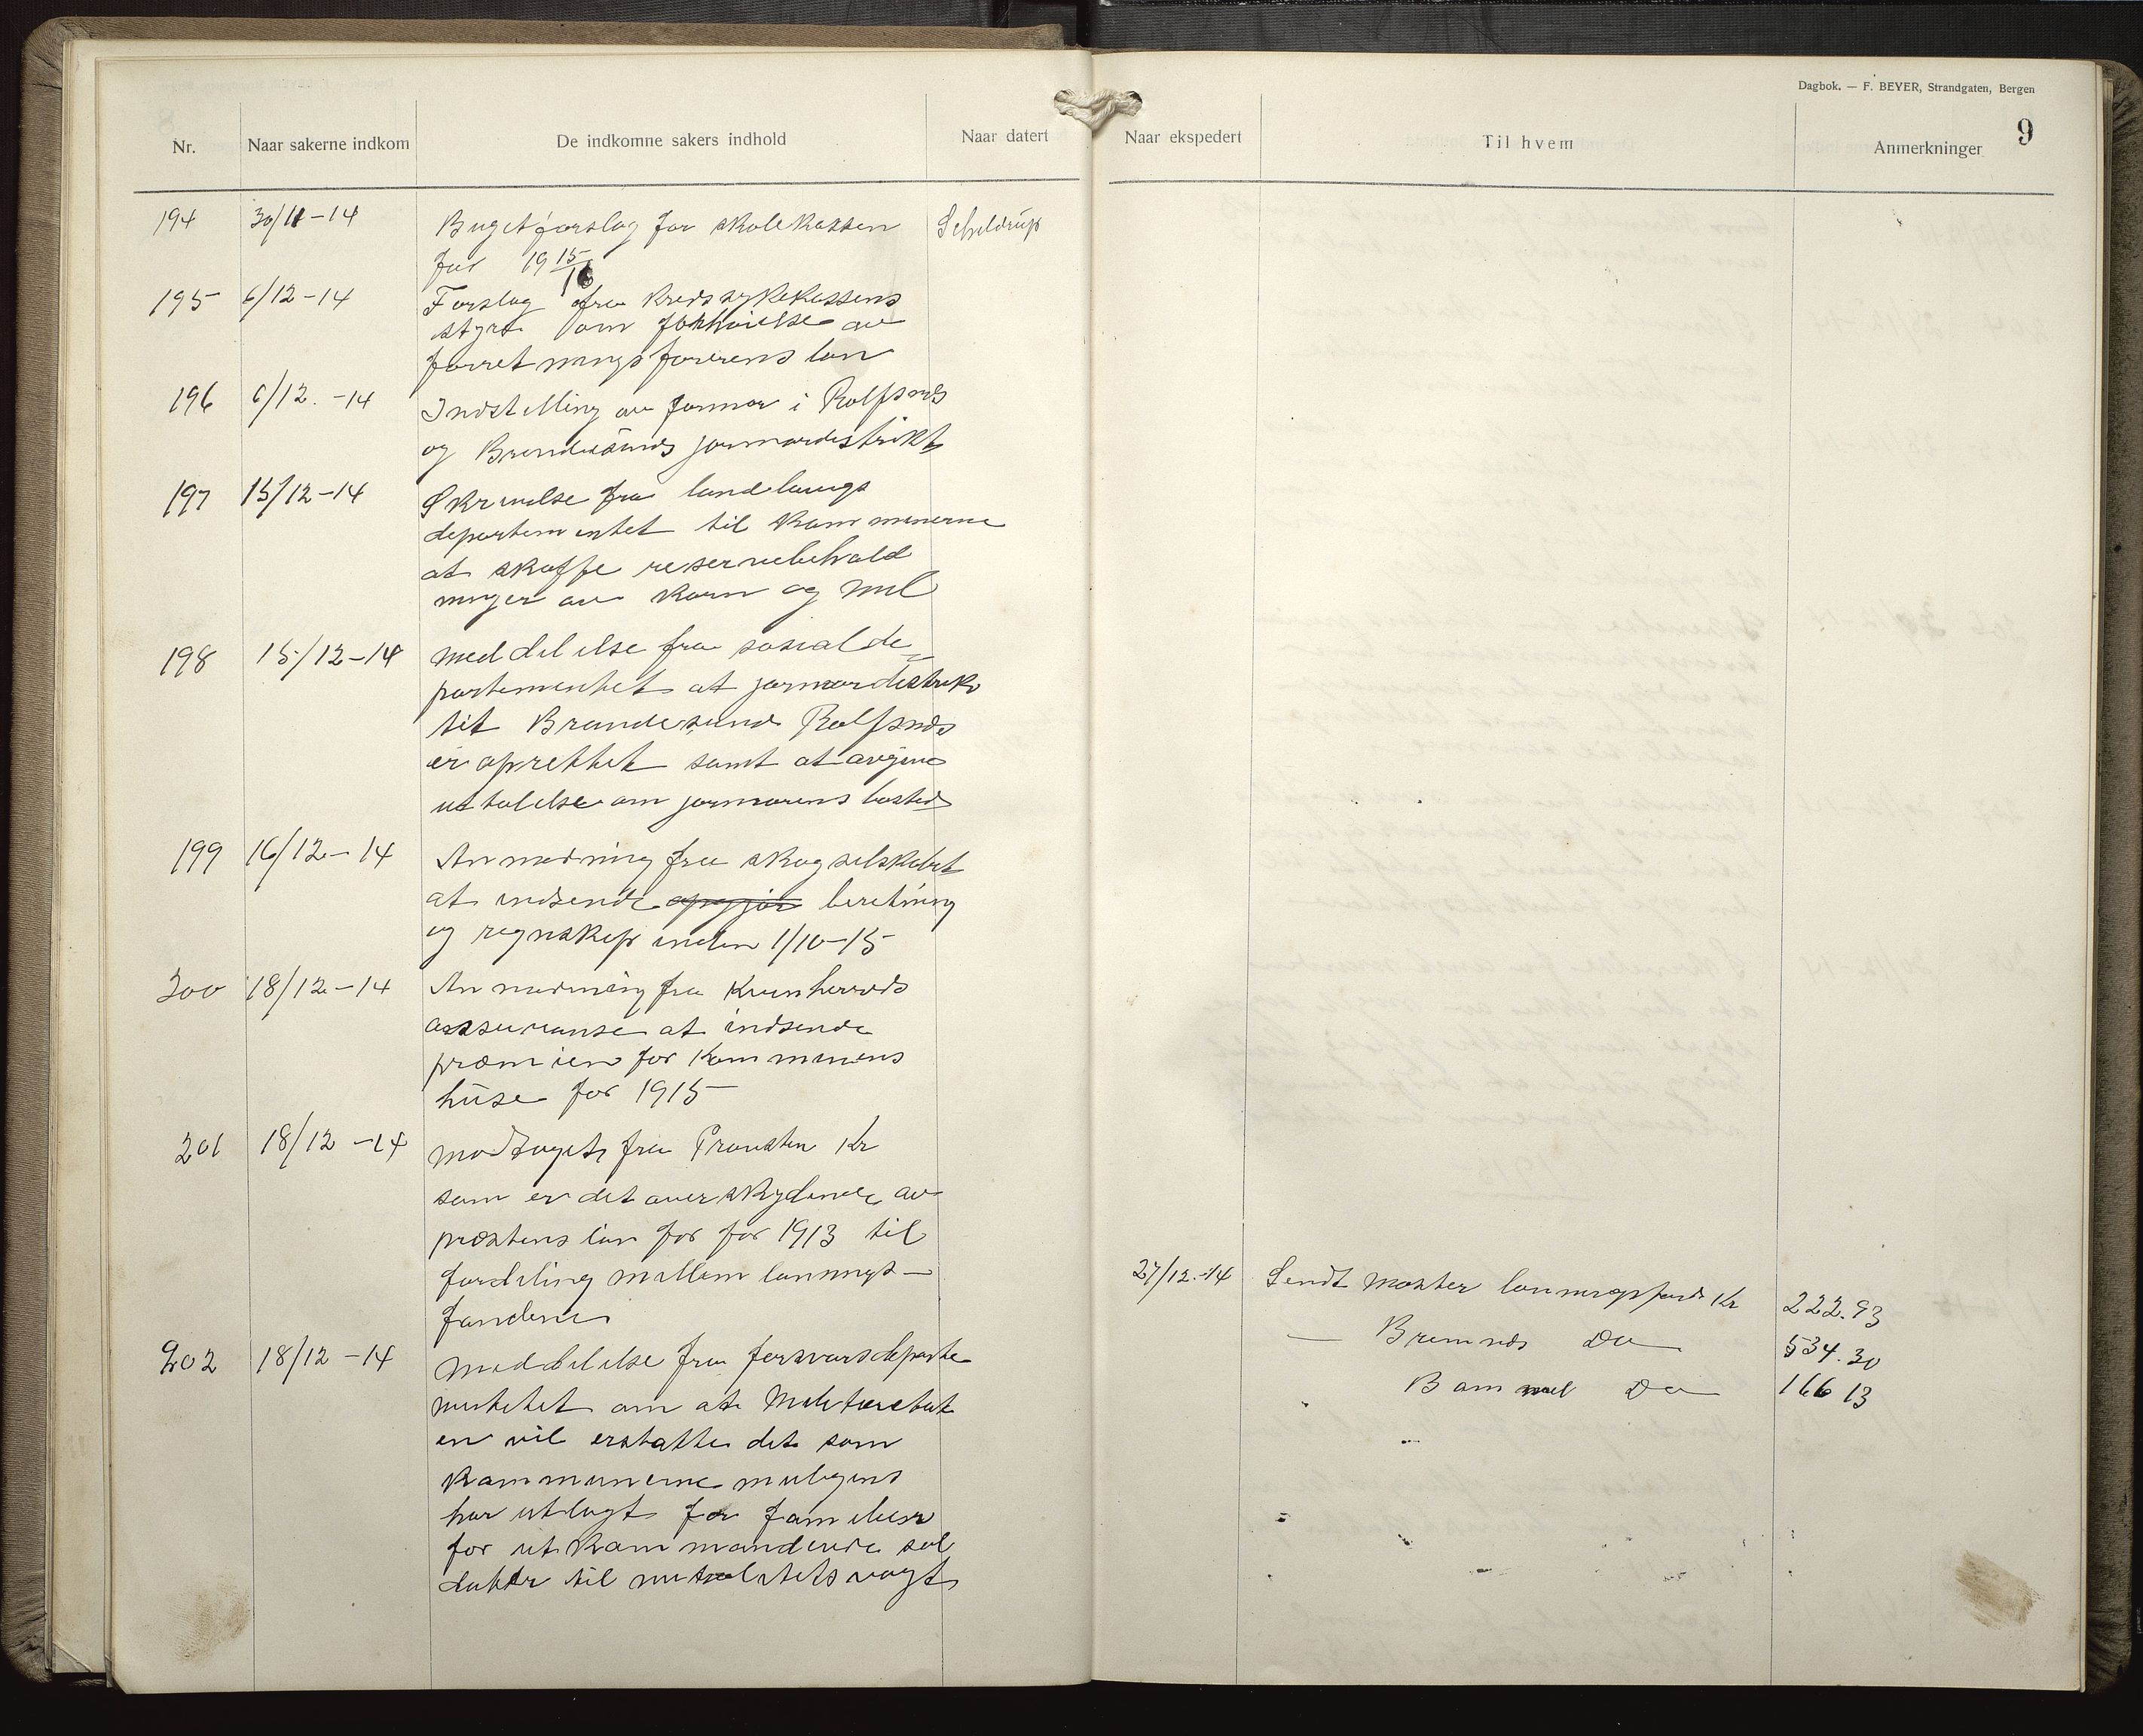 Dagbok. — F. BEYER, Strandgaten, Bergen
9
Nr. Naar sakerne indkom De indkomne sakers indhold Naar datert Naar ekspedert Til hvem Anmerkninger
194 30/11-14 Bugetforslag for skolekassen Scheldrup
for 1915/16
195 6/12-14 Forslag fra kredssykekassens
styre om forhøielse av
forretningsførerens løn
196 6/12.-14 Indstilling av jormor i Rolfsnes
og Brandesunds jormordistrikt
197 15/12-14 Skrivelse fra landbrugs
departementet til kommunerne
at skaffe reservebehold
ninger av korn og mel
198 15/12-14 meddelelse fra sosialde=
partementet at jormordistrik
tet Brandesund Rolfsnes
er oprettet samt at avgive
uttalelse om jormorens bosted
199 16/12-14 Anmodning fra skogselskabet
at indsende opgjør beretning
og regnskap inden 1/10-15
200 18/12-14 Anmodning fra Kvinherreds
assuranse at indsende
præmien for kommunens
huse for 1915
201 18/12-14 modtaget fra Provsten Kr
som er det overskydende av
prestens løn for for 1913 til
fordeling mellem lønnings-
fondene
27/12.-14 Sendt Moster lønningsfond Kr 222.93
— Bremnes Do 534.30
Bømmel Do 166 13
202 18/12-14 meddelelse fra forsvarsdeparte
mentet om at Militæretat
en vil erstatte det som
kommunerne muligens
har utlagt for familier
for utkommanderede sol
dater til nøitralitetsvagt